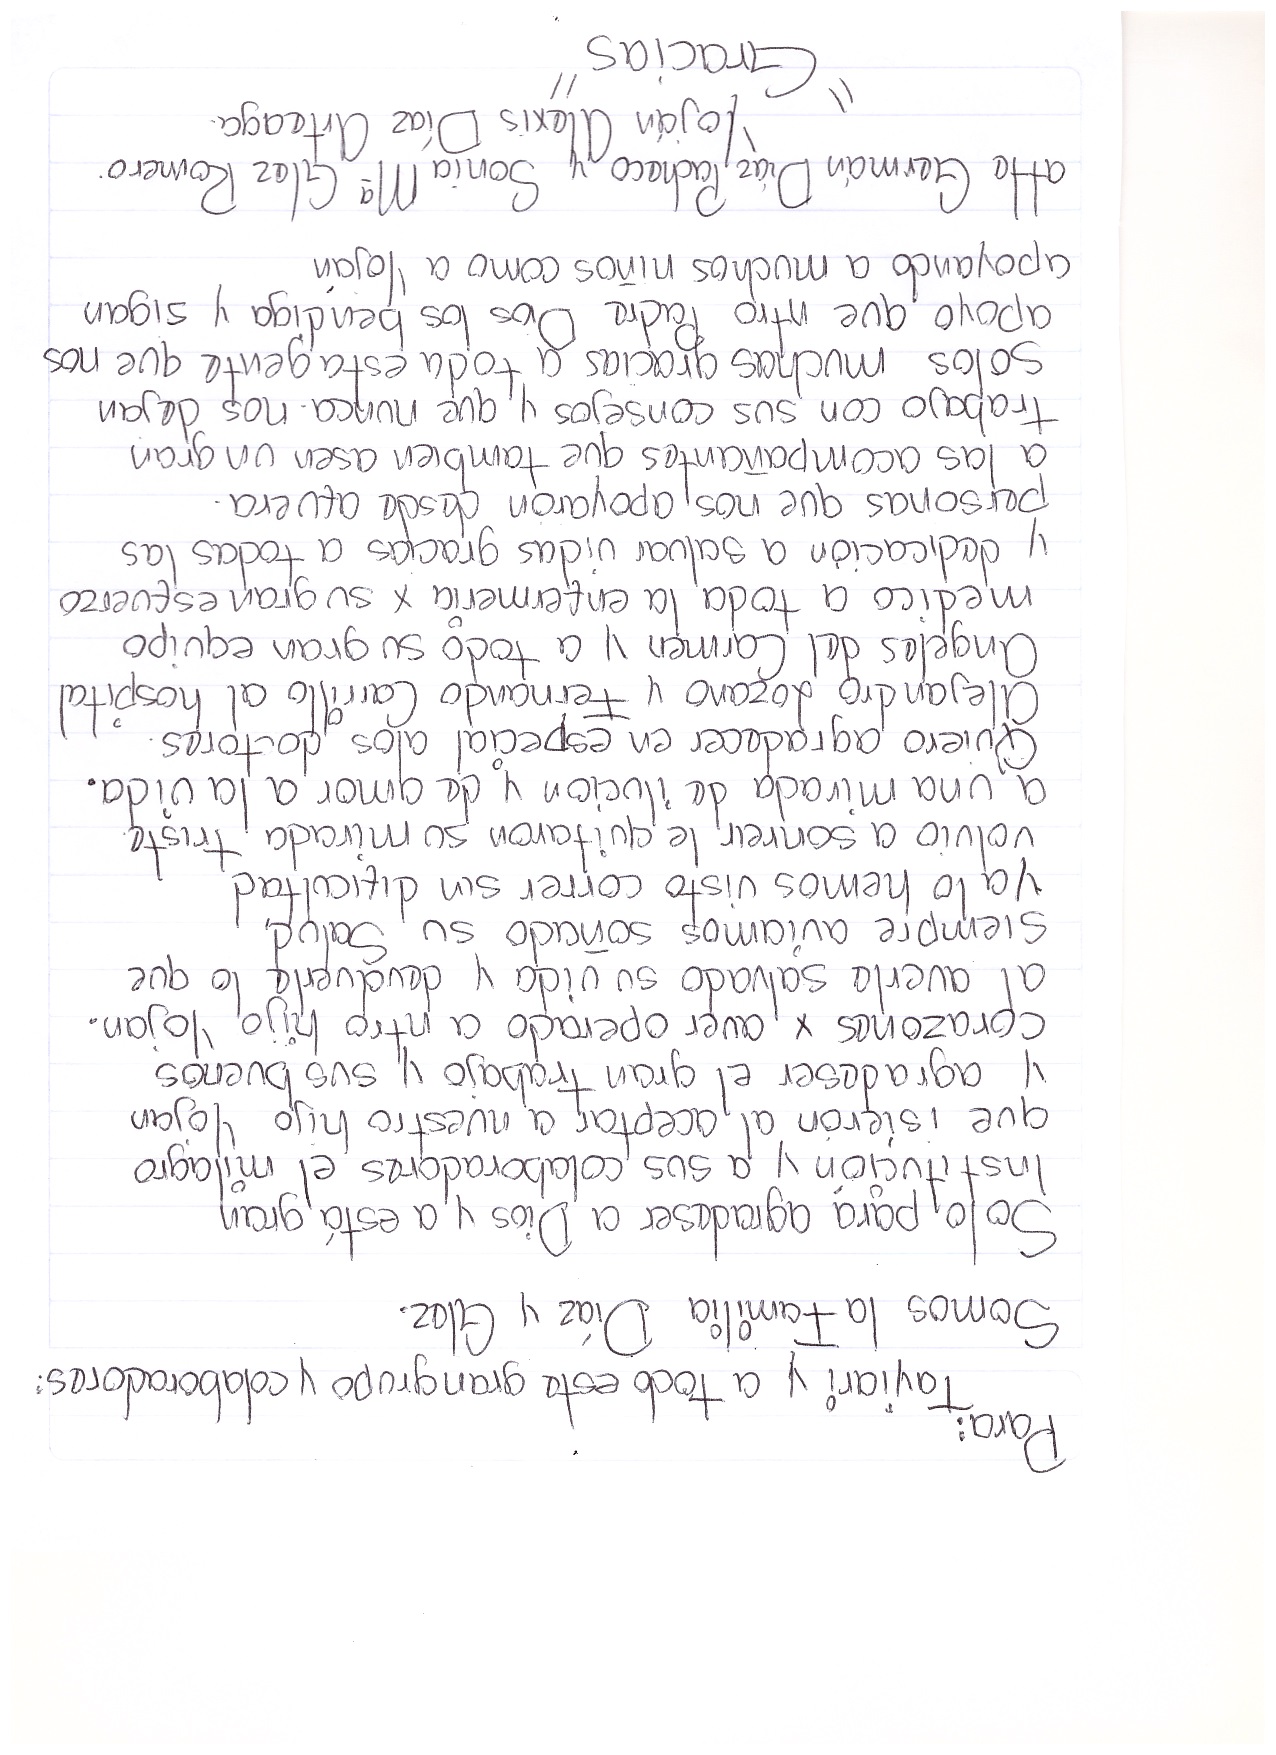 Para:
Tayiari y a todo este gran grupo y colaboradores:
Somos la Familia Díaz y Glez.
Solo para agradeser a Dios y a está gran
Institución y a sus colaboradores el milagro
que isierón al aceptar a nuestro hijo Yojan
y agradeser el gran trabajo y sus buenos
corazones x aver operado a ntro hijo Yojan.
al averle salvado su vida y devolverle lo que
siempre aviamos soñado su Salud,
ya lo hemos visto correr sin dificultad
volvio a sonreir le quitaron su mirada triste
a una mirada de ilucion y de amor a la vida.
Quiero agradecer en especial alos doctores.
Alejandro Lozano y Fernando Carrillo al hospital
Angeles del Carmen y a todo su gran equipo
medico a toda la enfermeria x su gran esfuerzo
y dedicación a salvar vidas gracias a todas las
personas que nos apoyaron desde afuera.
a las acompañantes que tambien asen un gran
trabajo con sus consejos y que nunca nos dejan
solos muchas gracias a toda esta gente que nos
apoyo que ntro Padre Dios los bendiga y sigan
apoyando a muchos niños como a Yojan
atte Germán Díaz Pacheco y Sonia Mª Glez Romero.
Yoján Alexis Díaz Arteaga.
"Gracias"